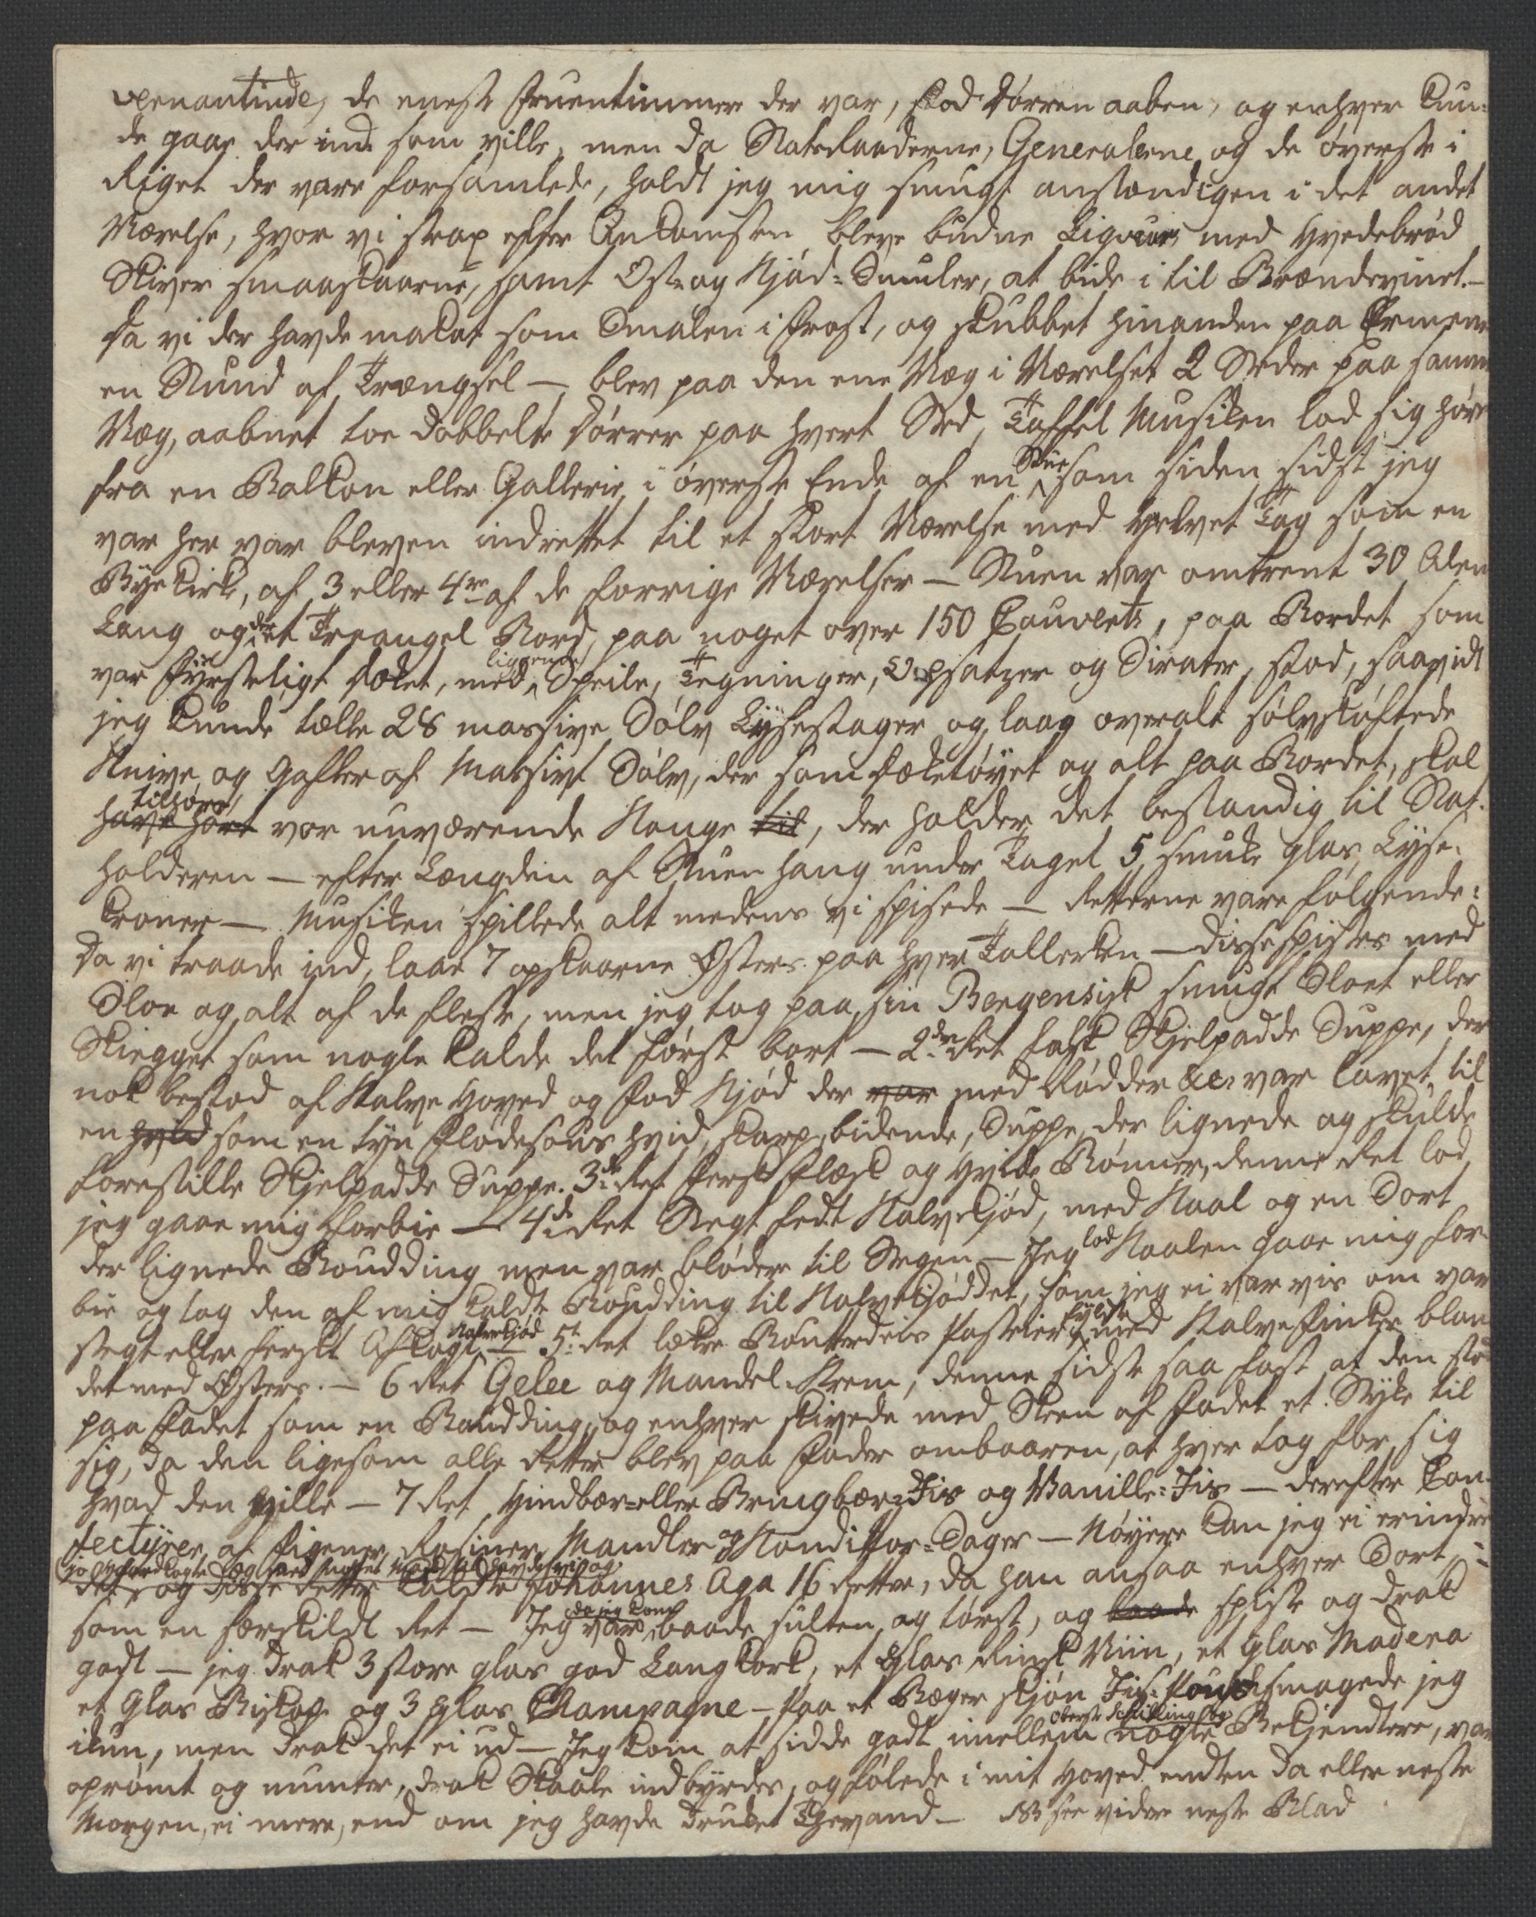 de eneste Fruentimmer der var, stod Dørren aaben, og enhver kun-
de gaae der ind som ville, men da StatsRaaderne, Generalerne og de øverste i
Riget der vare forsamlede, holdt jeg mig smugt anstændigen i det andet
Værelse, hvor vi strax efter Ankomsten bleve budne Liqueur med Hvedebrød
Skiver smaaskaarne, samt Ost og Kjød-Smuler, at bide i til Brændevinet. —
Da vi der havde makat som Smalen i Frost, og skubbet hinanden paa Ermene
en Stund af Trængsel — blev paa den ene Væg i Værelset 2 Steder paa samme
Væg, aabnet toe dobbelte Dörrer paa hvert Sted, Taffel Musiken lod sig høre
fra en Balkon eller Gallerie i øverste Ende af en Stue som siden sidst jeg
var her var bleven indrettet til et stort Værelse med hvelvet Tag som en
Bÿekirke, af 3 eller 4re af de forrige Værelser — Stuen var omtrent 30 Alen
Lang og det Treangel Bord, paa noget over 150 Couverts, paa Bordet som
var fyrsteligt dæket, med liggende Speile, Tegninger, Opsatzer og Sirater, stod, saavidt
jeg kunde tælle 28 massive Sølv Lysestager og laag overalt sølvskaftede
Knive og Gafler af Massivt Sølv, der som Dæketøyet og alt paa Bordet, skal
have hørt tilhøre vor nuværende Konge til, der holder det bestandig til Stat-
holderen — efter Længden af Stuen hang under Taget 5 smuke Glas Lyse-
kroner — Musiken spillede alt medens vi spisede — Retterne vare følgende:
Da vi traade ind, laae 7 opskaarne Østers paa hver Tallerken — disse spistes med
Sloe og alt af de fleste, men jeg tog paa sin Bergensisk smugt Sloet eller
Skiegget som nogle kalde det først bort — 2den Ret falsk Skjelpadde Suppe, der
nok bestod af Kalve Hoved og Fod Kjød der var med Fødder &c var lavet til
en hvid som en tyn Flødesous hvid, skarp, bidende, Suppe, der lignede og skulde
forestille Skjelpadde Suppe. 3de Ret fersk Flæsk og Hvide Bønner, denne Ret lod
jeg gaae mig forbie — 4de Ret Stegt fedt Kalvekjød, med Kaal og en Sort
der lignede Boudding men var blødere til Stegen — Jeg lod Kaalen gaae mig for-
bie og tog den af mig kaldte Boudding til Kalvekjøddet, som jeg ei var vis om var
stegt eller fersk Afkogt Kalvekjød — 5te Ret lækre Boutterdeis Pasteier fyldte med Kalve Finker blan-
det med Østers. — 6 Ret Gelee og Mandel-Krem, denne sidste saa fast at den stod
paa Fadet som en Boudding, og enhver skivede med Skeen af Fadet et Styke til
sig, da den ligesom alle Retter blev paa Fader ombaaren, at hver tog for sig
hvad den ville — 7 Ret Hindbær- eller Bringbær-Jis og Vanille-Jis — derefter Con-
fecturer af Figener, Rosiner, Mandler og Konditor-Sager — Nøyere kan jeg ei erindre
det, og disse Retter kaldte Johannes Aga 16 Retter, da han ansaa enhver Sort
som en særskildt Ret — Jeg var da jeg kom baade sulten og tørst, og baade spiste og drak
godt — jeg drak 3 store Glas god Langkork, et Glas Rinsk Viin, et Glas Madera
et Glas Biskop og 3 Glas Champagne — paa et Bæger skjøn Jis-Pounch smagede jeg
ikun, men drak det ei ud — Jeg kom at sidde godt imellem nogle Oberst Schilling og Bekjendtere, var
oprømt og munter, drak Skaale indbyrdes, og følede i mit Hoved endten da eller neste
Morgen, ei mere, end om jeg havde Drukket Thevand — NB see videre neste Blad